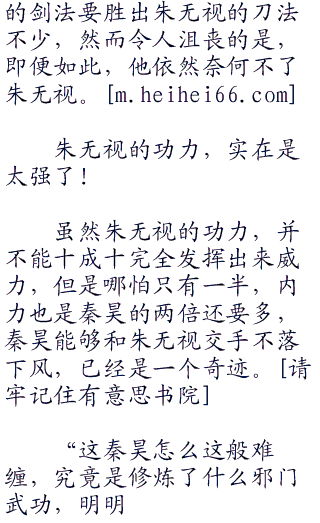 的剑法要胜出朱无视的刀法
不少，然而令人沮丧的是，
即便如此，他依然奈何不了
朱无视。[m.heihei66.com]
朱无视的功力，实在是
太强了！
虽然朱无视的功力，并
不能十成十完全发挥出来威
力，但是哪怕只有一半，内
力也是秦昊的两倍还要多，
秦昊能够和朱无视交手不落
下风，已经是一个奇迹。[请
牢记住有意思书院]
“这秦昊怎么这般难
缠，究竟是修炼了什么邪门
武功，明明